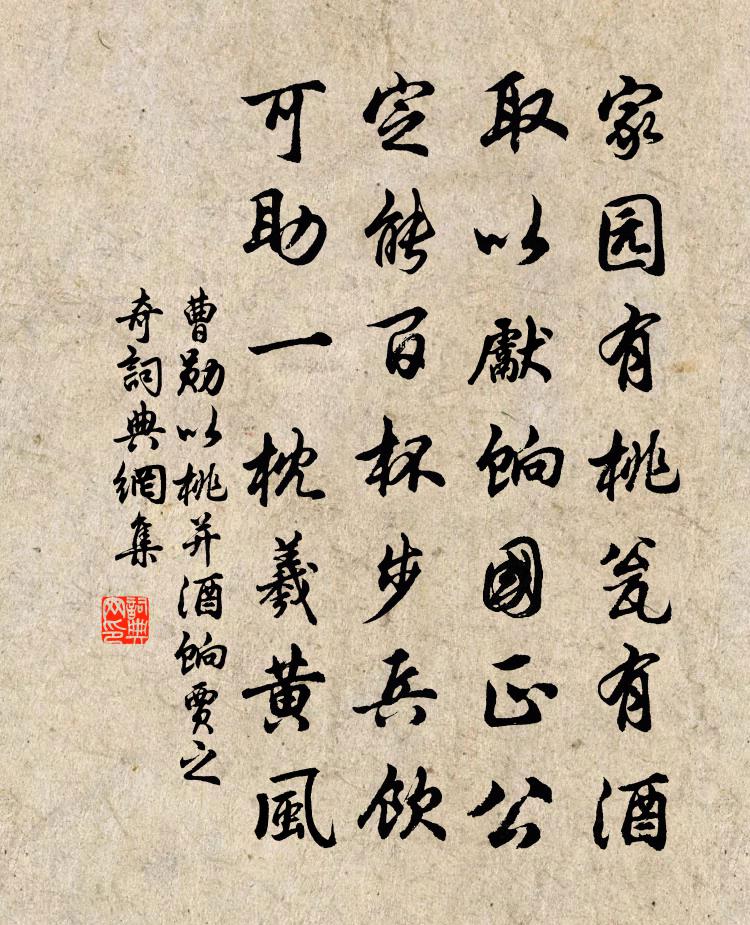 家园有桃瓮有酒
取以獻餉國正公
定能百杯步兵飲
可助一枕羲黄風
曹勛以桃并酒餉賈之
奇詞典網集
詞典網印